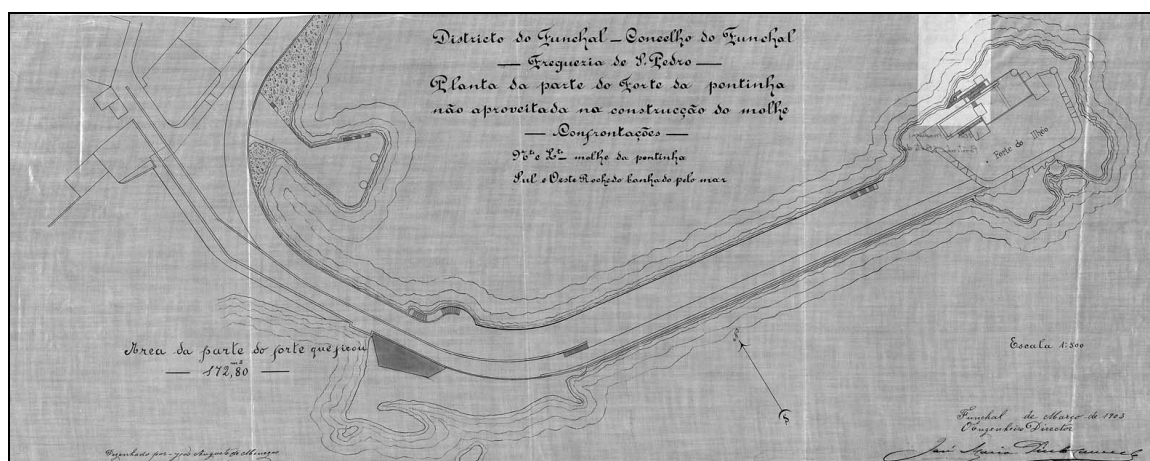 Districto do Funchal — Concelho do Funchal
— Freguezia de S. Pedro —
Planta da parte do Forte da pontinha
não aproveitada na construcção do molhe
— Confrontações —
Nte e Lte molhe da pontinha
Sul e Oeste Rochedo banhado pelo mar
Forte do Ilhéo
Area da parte do forte que ficou
— 172,80 m2 —
Escala 1:500
Funchal de Março de 1903
O Engenheiro Director
José Maria
Dezenhado por José Augusto de Menezes